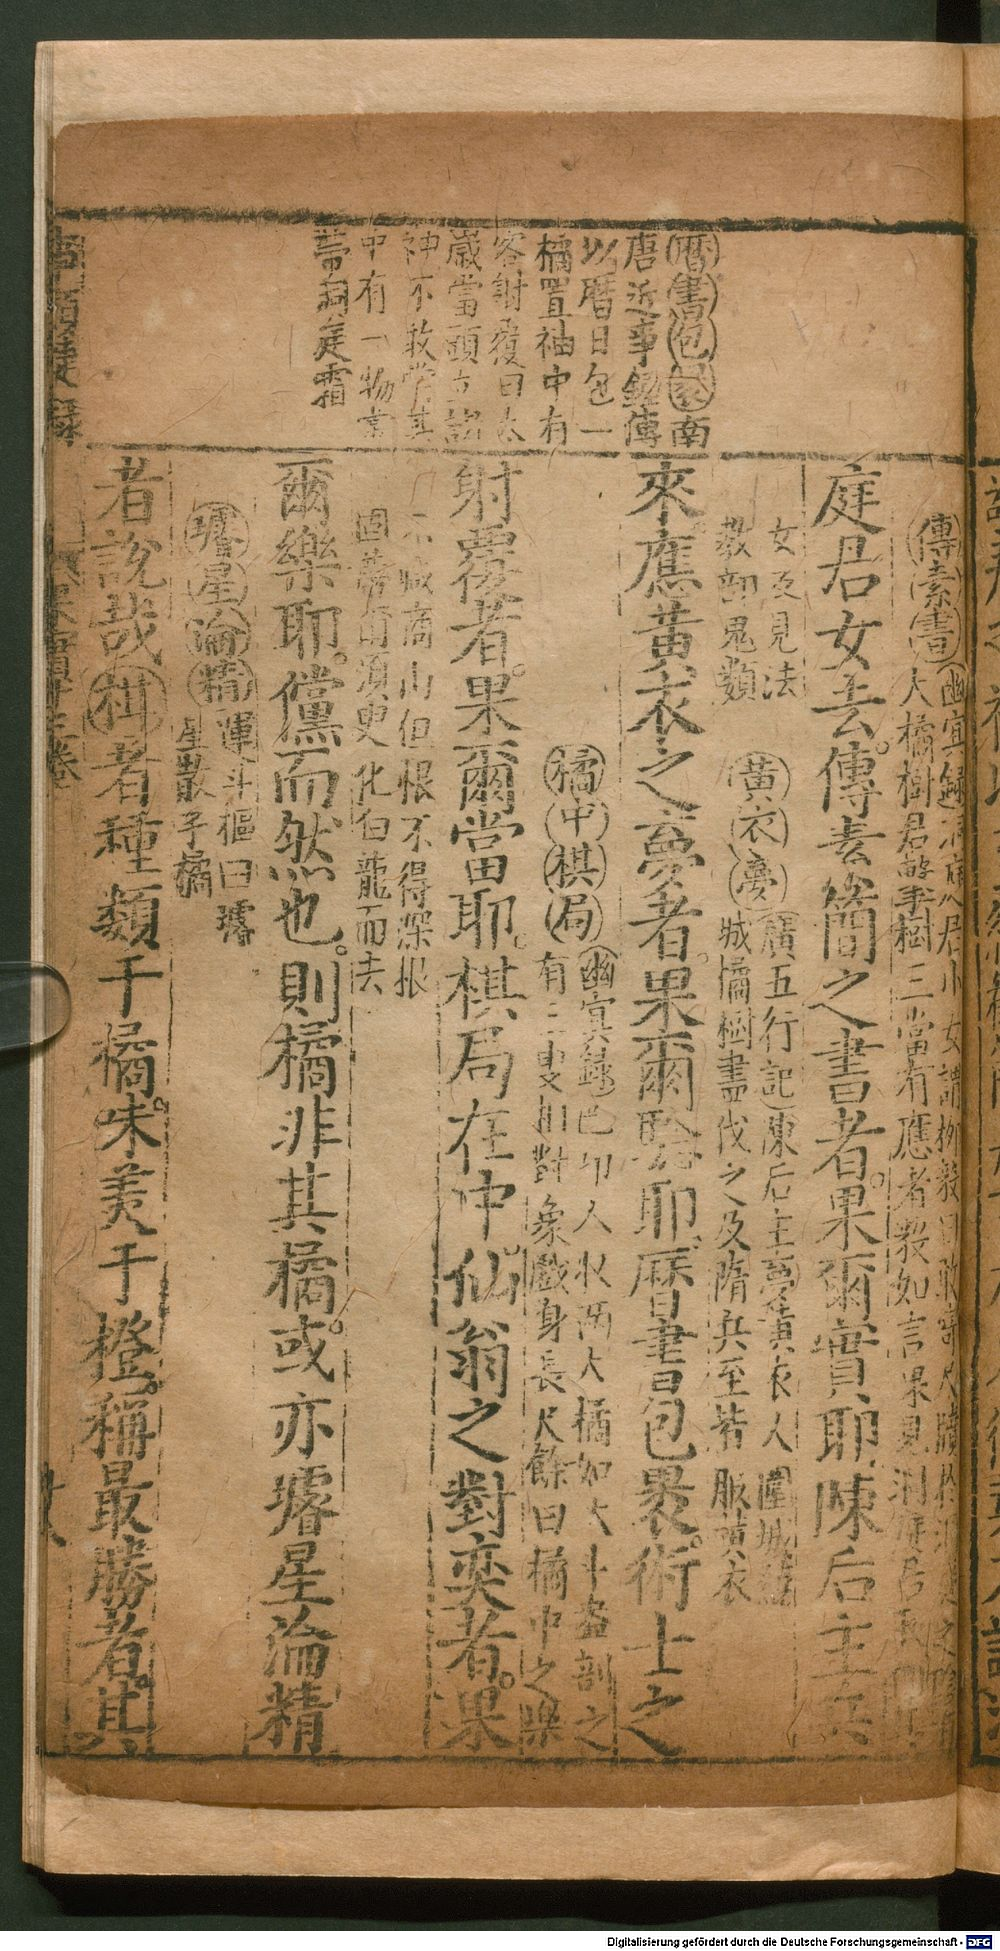 曆書包裹南
唐近事錄傳
以曆日包一
橘置袖中有
客射覆曰太
歲當頭立諸
神不敢當其
中有一物常
帶洞庭霜
傳素書
大橘樹君擊樹三當有應者毅如言果見洞庭君
庭君女去傳素簡之書者果爾實耶陳后主兵
女及見法
教部鬼類
黃衣夢
廣五行記陳后主夢黃衣人圍城繞
城橘樹盡伐之及隋兵至皆服黃衣
來應黃衣之夢者果爾騐耶曆書包裹術士之
橘中棋局
幽冥錄巴邛人收兩大橘如大斗盎剖之
有二叟相對象戲身長尺餘曰橘中之樂
射覆者果爾當耶棋局在中仙翁之對奕者果
不減商山但恨不得深根
固蒂耳須臾化白龍而去
爾樂耶儻而然也則橘非其橘或亦璿星淪精
璿星淪精
運斗樞曰璿
星散子橘
者說哉楫者種類千橘味美于橙稱最勝者其